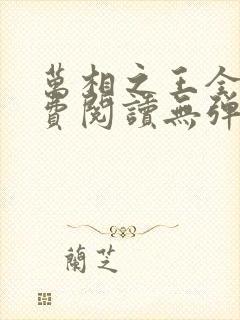 萬相之王全
費閱讀無彈
蘭芝